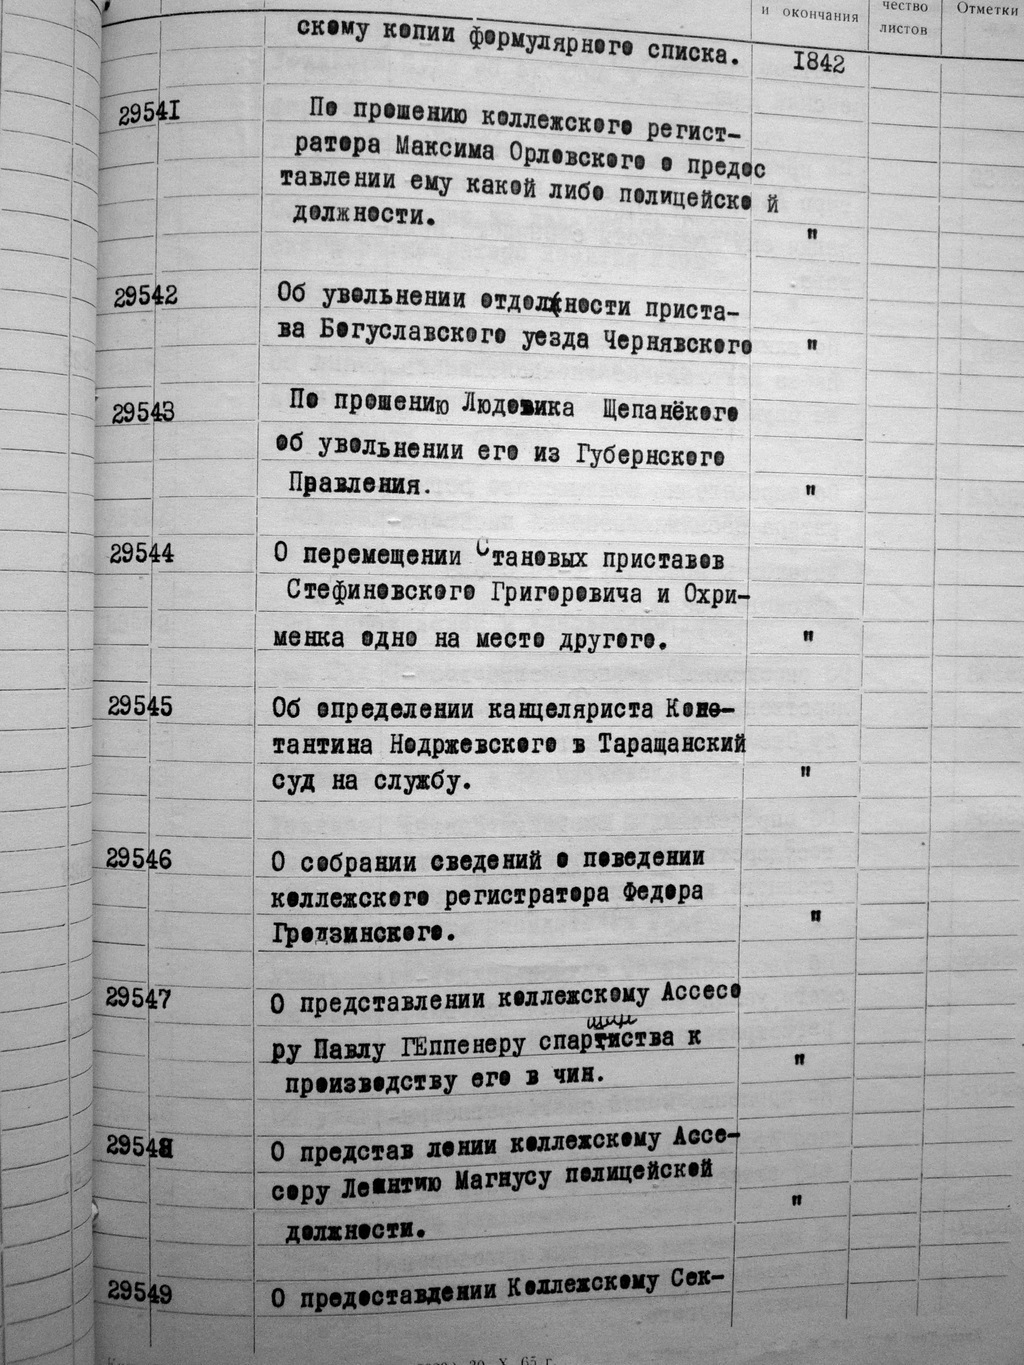 и окончания
чество
листов
Отметки
скому копии формулярного списка.
1842
29541
По прошению коллежского регист-
ратора Максима Орловского о предос
тавлении ему какой либо полицейско й
должности.
"
29542
Об увольнении отдолжности приста-
ва Богуславского уезда Чернявского
"
29543
По прошению Людовика Щепанёкого
об увольнении его из Губернского
Правления.
"
29544
О перемещении Становых приставов
Стефиновского Григоровича и Охри-
менка одно на место другого.
"
29545
Об определении канцеляриста Конс-
тантина Нодржевского в Таращанский
суд на службу.
"
29546
О собрании сведений о поведении
коллежского регистратора Федора
Гродзинского.
"
29547
О представлении коллежскому Ассесо
ру Павлу ГЕппенеру спартиства к
производству его в чин.
"
29548
О представ лении коллежскому Ассе-
сору Леонтию Магнусу полицейской
должности.
"
29549
О предоставдении Коллежскому Сек-
20. X. 65 г.